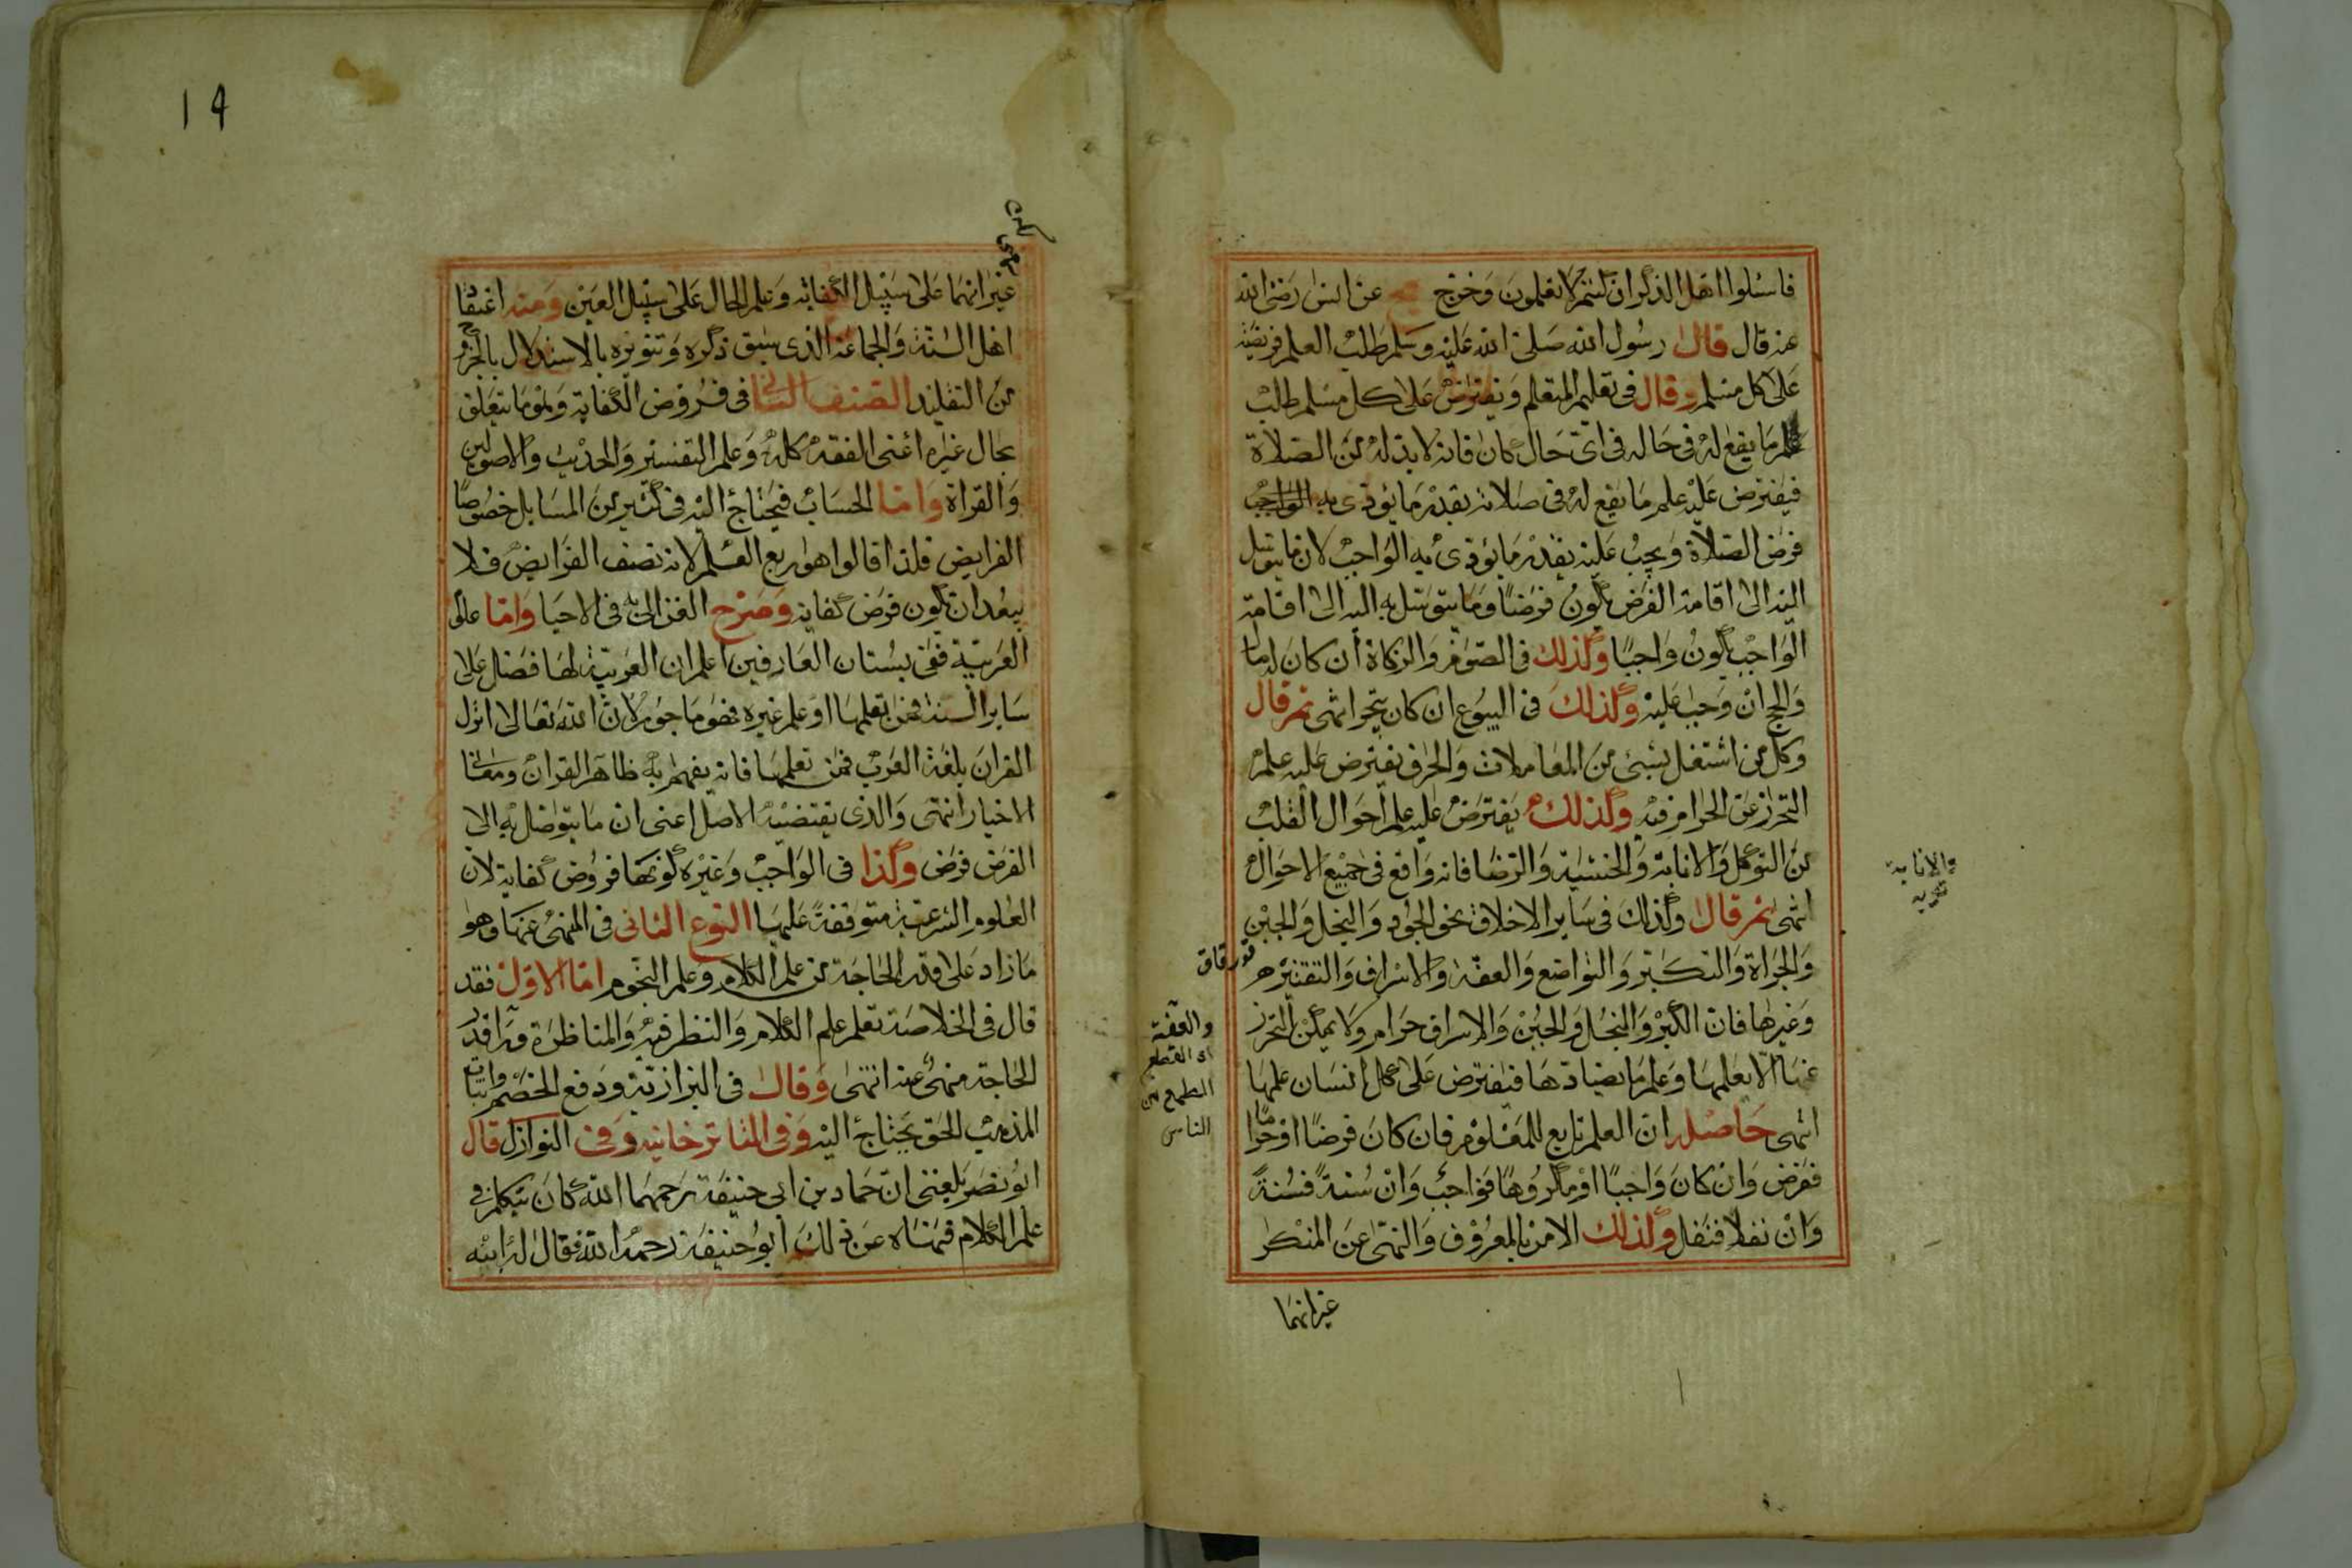 فاسئلوا اهل الذكر ان كنتم لا تعلمون وخرج مج عن انس رضى الله
عنه قال قال رسول الله صلى الله عليه وسلم طلب العلم فريضة
على كل مسلم وقال فى تعليم المتعلم ويفترض على كل مسلم طلب
علم ما يقع له فى حاله فى اى حال كان فانه لا بد له من الصلاة
فيفترض عليه علم ما يقع له فى صلاته بقدر ما يؤدى به الواجب
فرض الصلاة ويجب عليه بقدر ما يؤدى به الواجب لان ما يتوسل
اليه الى اقامة الفرض يكون فرضا وما يتوسل به اليه الى اقامة
الواجب يكون واجبا وكذلك فى الصوم والزكاة ان كان له مال
والحج ان وجب عليه وكذلك فى البيوع ان كان يتجر انتهى ثم قال
وكل من اشتغل بشىء من المعاملات والحرف يفترض عليه علم
التحرز عن الحرام فيه وكذلك يفترض عليه علم احوال القلب
من التوكل والانابة والخشية والرضا فانه واقع فى جميع الاحوال
انتهى ثم قال وكذلك فى ساير الاخلاق نحو الجود والبخل والجبن
والجراة والتكبر والتواضع والعفة والاسراف والتقتير
وغيرها فان الكبر والبخل والجبن والاسراف حرام ولا يمكن التحرز
عنها الا بعلمها وعلم ما يضادها فيفترض على كل انسان علمها
انتهى حاصله ان العلم تابع للمعلوم فان كان فرضا او حراما
ففرض وان كان واجبا او مكروها فواجب وان سنة فسنة
وان نفلا فنفل وكذلك الامر بالمعروف والنهى عن المنكر
غير انهما
والانابة
توبه
والعفة
اى القطع
الطمع من
الناس
١٩
غير انهما على سبيل الكفاية وعلم الحال على سبيل العين ومنه اعتقاد
اهل السنة والجماعة الذى سبق ذكره وتنويره بالاستدلال بالخروج
من التقليد الصنف الثانى فى فروض الكفاية وهو ما يتعلق
بحال غيره اعنى الفقه كله وعلم التفسير والحديث والاصولين
والقراة واما الحساب فيحتاج اليه فى كثير من المسايل خصوصا
الفرايض فلذا قالوا هو ربع العلم لانه نصف الفرايض فلا
يبعد ان يكون فرض كفاية وصرح به الغزالى فى الاحيا واما علم
العربية ففى بستان العارفين اعلم ان العربية لها فضل على
ساير السنة فمن تعلمها او علم غيره فهو ماجور لان الله تعالى انزل
القران بلغة العرب فمن تعلمها فانه يفهم به ظاهر القران ومعانى
الاخبار انتهى والذى يقتضيه الاصل اعنى ان ما يتوصل به الى
الفرض فرض وكذا فى الواجب وغيره كونها فروض كفاية لان
العلوم الشرعية متوقفة عليها النوع الثانى فى المنهى عنها وهو
ما زاد على قدر الحاجة من علم الكلام وعلم النجوم اما الاول فقد
قال فى الخلاصة تعلم علم الكلام والنظر فيه والمناظرة وراء قدر
الحاجة منهى عنه انتهى وقال فى البزازية ودفع الخصم واثبات
المذهب للحق يحتاج اليه وفى التاترخانية وفى النوازل قال
ابو نصر بلغنى ان حماد بن ابى حنيفة رحمهما الله كان يتكلم فى
علم الكلام فنهاه عن ذلك ابو حنيفة رحمه الله فقال له ابنه